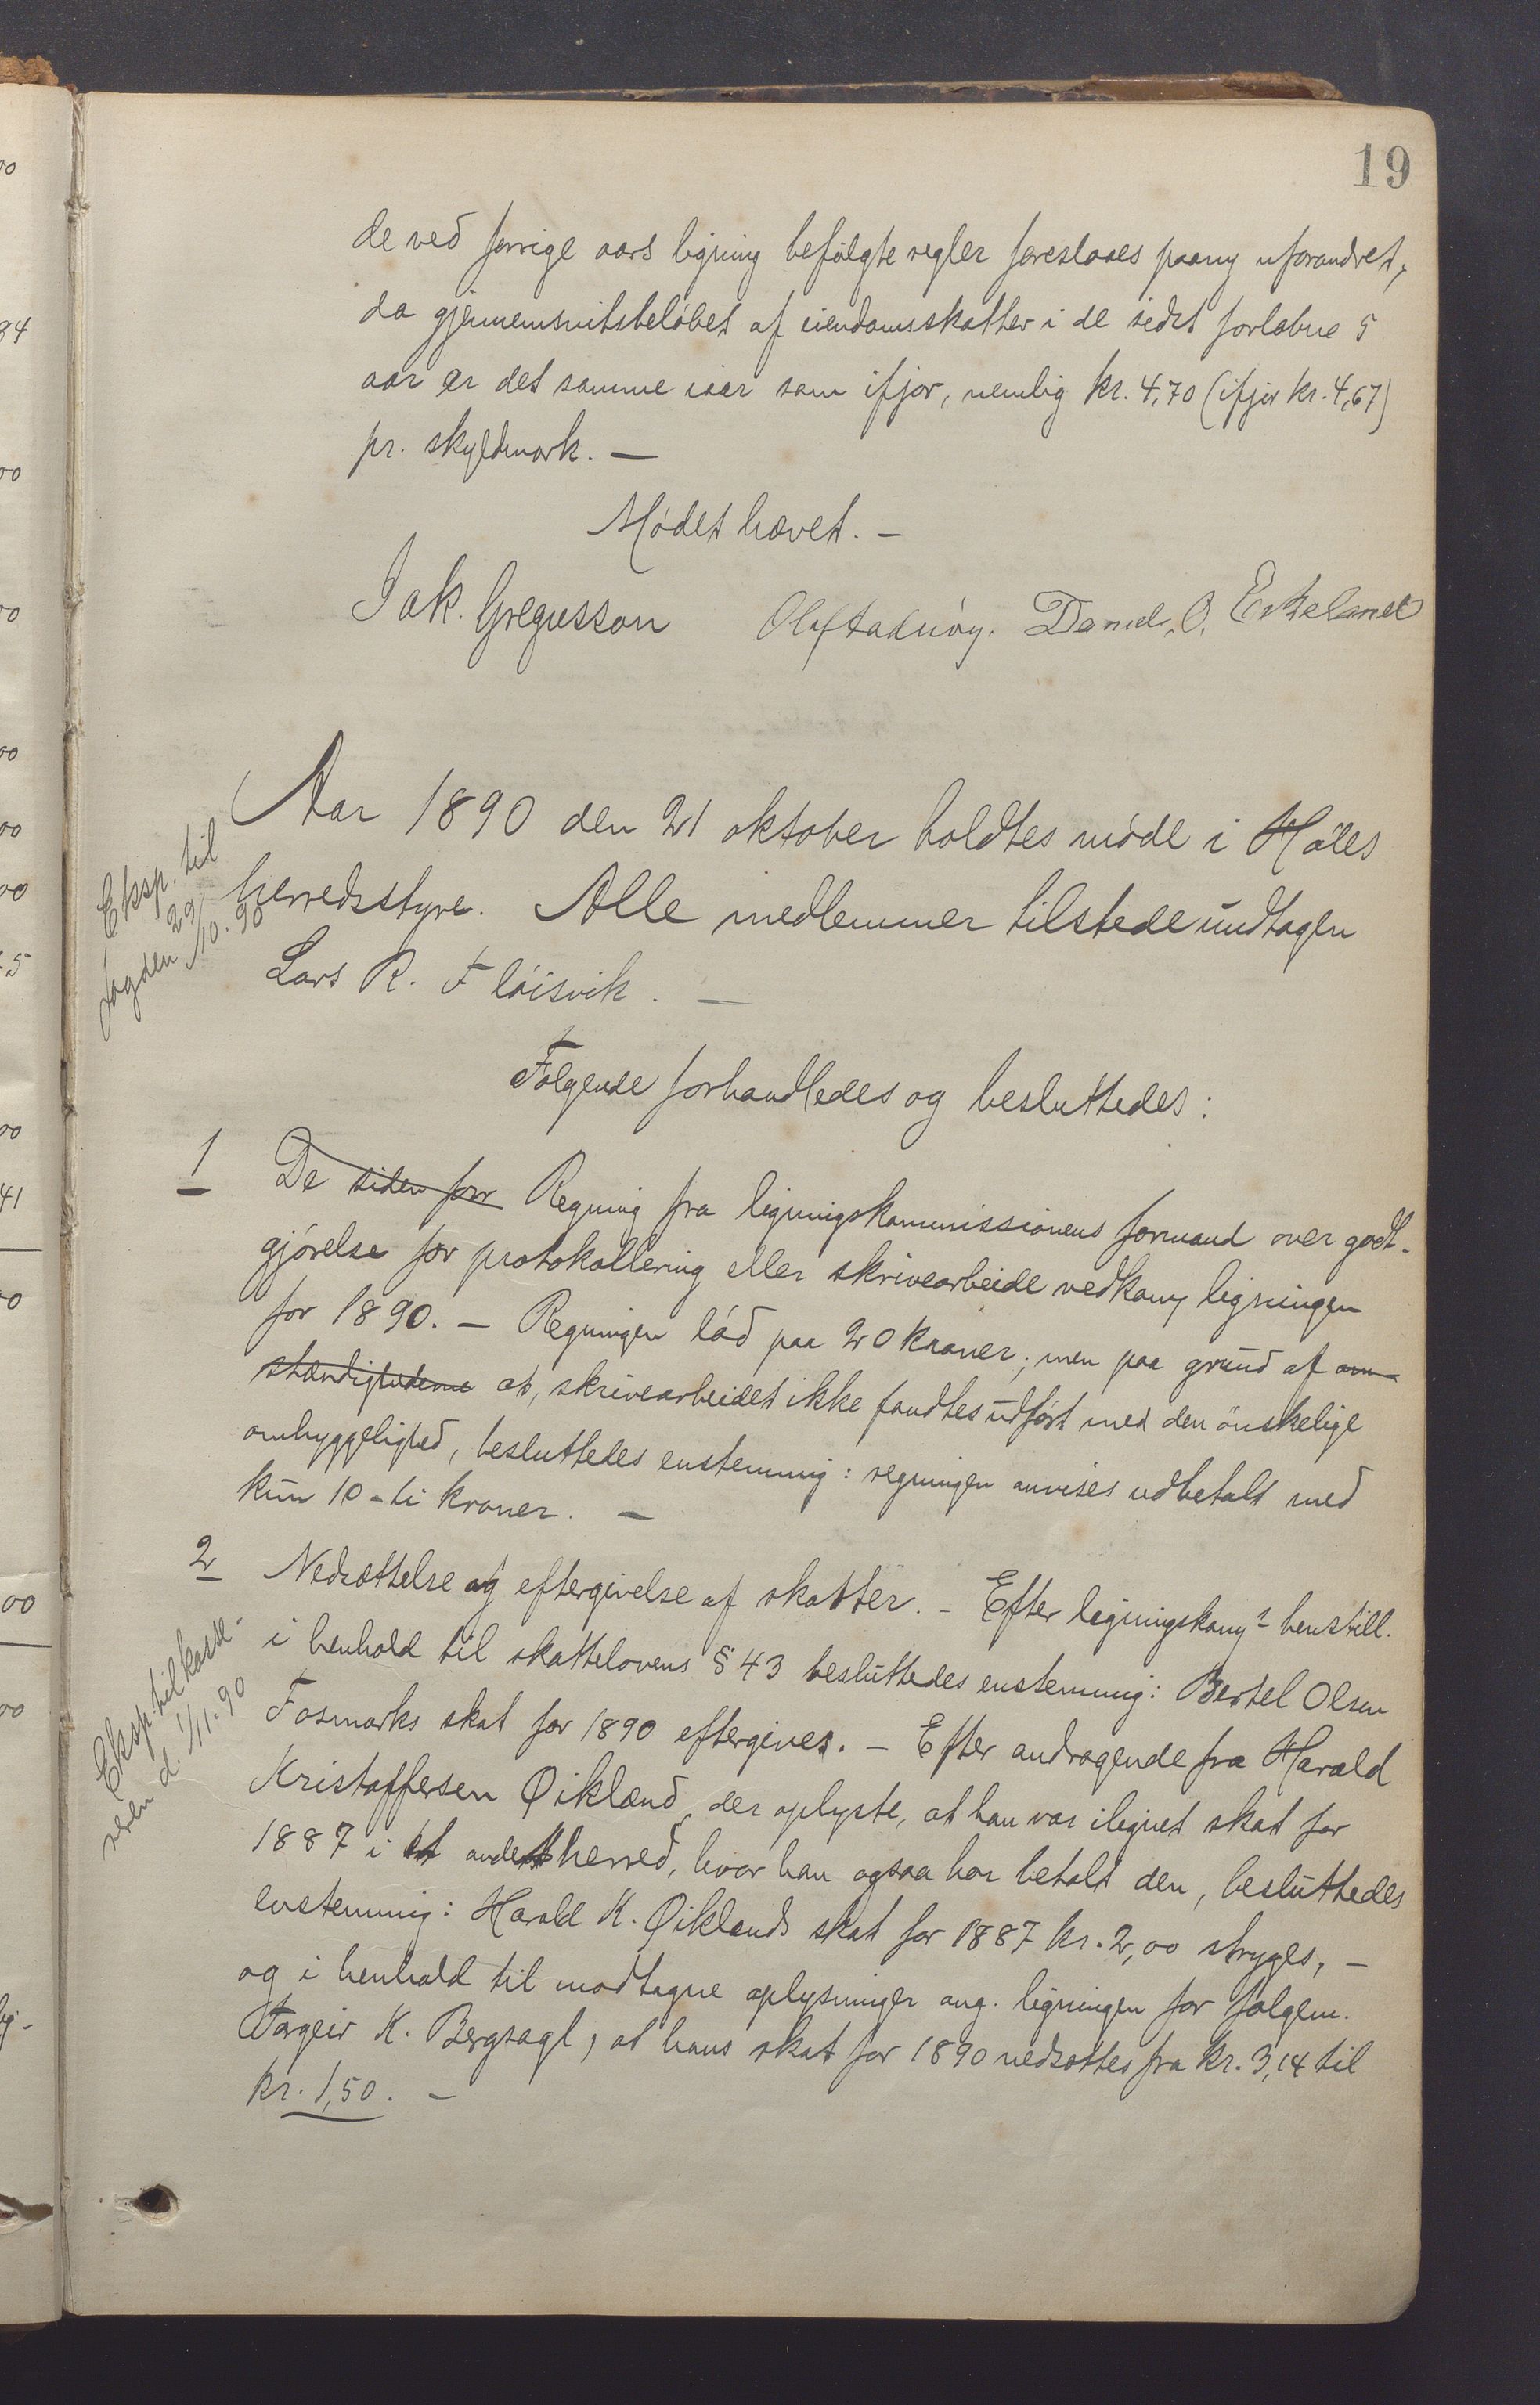 19
de ved forrige aars ligning befølgte regler foreslaaes paany uforandret,
da gjennemsnitsbeløbet af eiendomsskatter i de sidst forløbne 5
aar er det samme iaar som ifjor, nemlig kr. 4,70 (ifjor kr. 4,67)
pr. skyldmark. —
Mødet hævet. —
Jak. Gregusson Olaf Daniel. O. Eskeland
Aar 1890 den 21 oktober holdtes møde i Høles
Eksp. til
fogden 29/10. 90
herredsstyre. Alle medlemmer tilstede undtagen
Lars R. Fløisvik. —
Følgende forhandledes og besluttedes:
1 De siden forr Regning fra ligningskommissionens formand over godt-
gjørelse for protokollering eller skrivearbeide vedkom. ligningen
for 1890. — Regningen lød paa 20 kroner; men paa grund af om-
stændighederne at, skrivearbeidet ikke fandtes udført med den ønskelige
omhyggelighed, besluttedes enstemmig: regningen anvises udbetalt med
kun 10 - ti kroner. —
2 Nedsættelse og eftergivelse af skatter. – Efter ligningskom.s henstill.
i henhold til skattelovens § 43 besluttedes enstemmig: Bertel Olsen
Eksp. til kasse-
reren d. 1/11. 90
Fosmarks skat for 1890 eftergives. – Efter andragende fra Harald
Kristoffersen Øikland, der oplyste, at han var ilignet skat for
1887 i et andet herred, hvor han ogsaa har betalt den, besluttedes
enstemmig: Harald K. Øiklands skat for 1887 kr. 2,00 stryges, –
og i henhold til modtagne oplysninger ang. ligningen for følgem.
Torgeir K. Bergsagl, at hans skat for 1890 nedsættes fra kr. 3,14 til
kr. 1,50. –